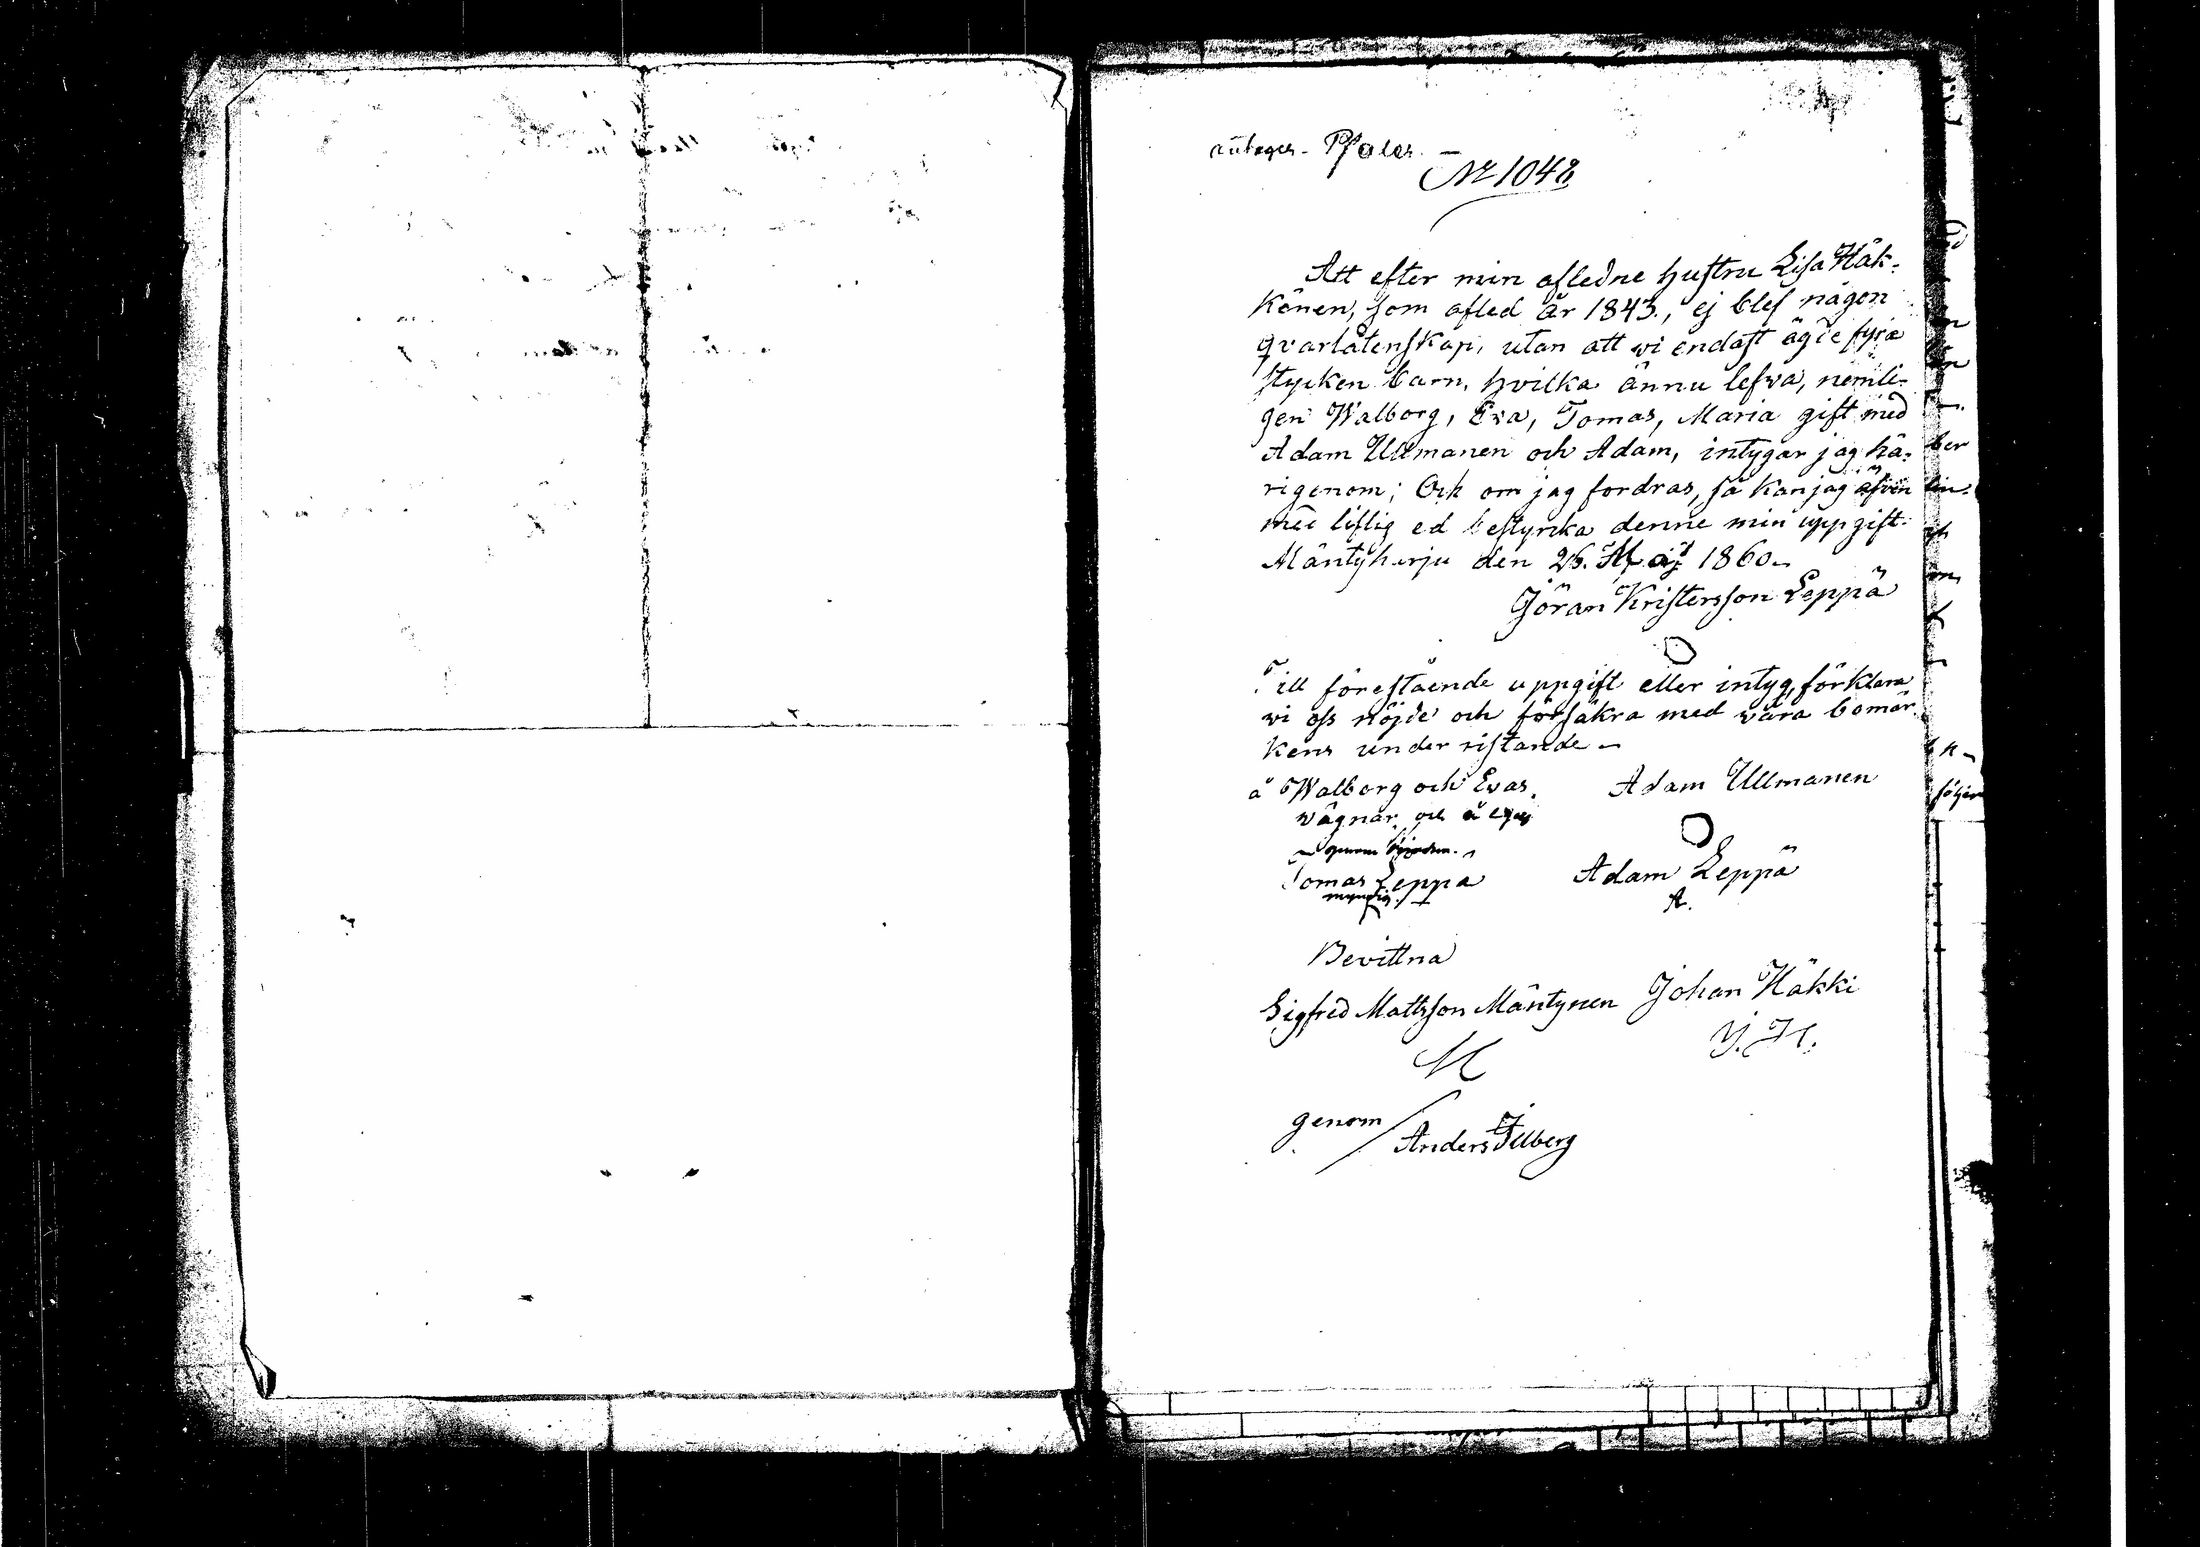 antages. Pfaler. —
No 1048
Att efter min afledne hustru Lisa Häk-
könen, som afled år 1843., ej blef någon
qvarlåtenskap, utan att wi endast ägde fyra
stycken barn, hvilka ännu lefwa, nemli-
gen Walborg, Eva, Tomas, Maria gift med
Adam Ullmanen och Adam, intygar jag hä-
rigenom; Och om jag fordras, så kan jag äfven
med liflig ed bestyrka denne min uppgift.
Mäntyharju den 26. Maji 1860.
Jöran Kristersson Leppä
Till förestående uppgift eller intyg, förklara
wi oss nöjde och försäkra med wåra bomär-
kens underristande —
å Walborg och Evas Adam Ullmanen
wägnar och å egen
Tomas Leppä Adam Leppä
myndig A.
Bevittna
Sigfred Mattsson Mäntynen Johan Häkki
M J. H.
genom
Anders Illberg